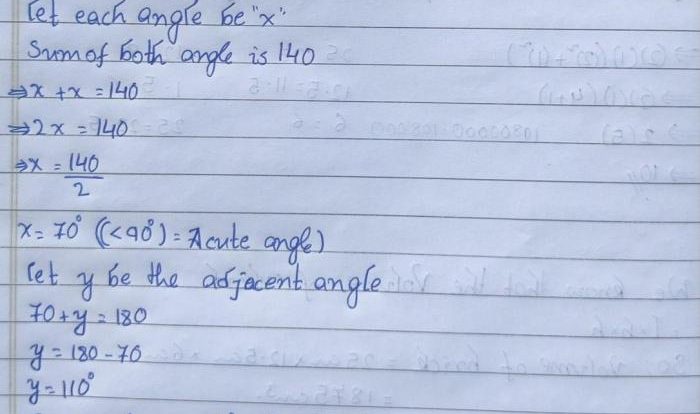 let each angle be "x".
Sum of both angle is 140
⇒ x + x = 140
⇒ 2x = 140
⇒ x = 140/2
x = 70° ((<90°) = Acute angle)
let y be the adjecent angle
70 + y = 180
y = 180 - 70
y = 110°